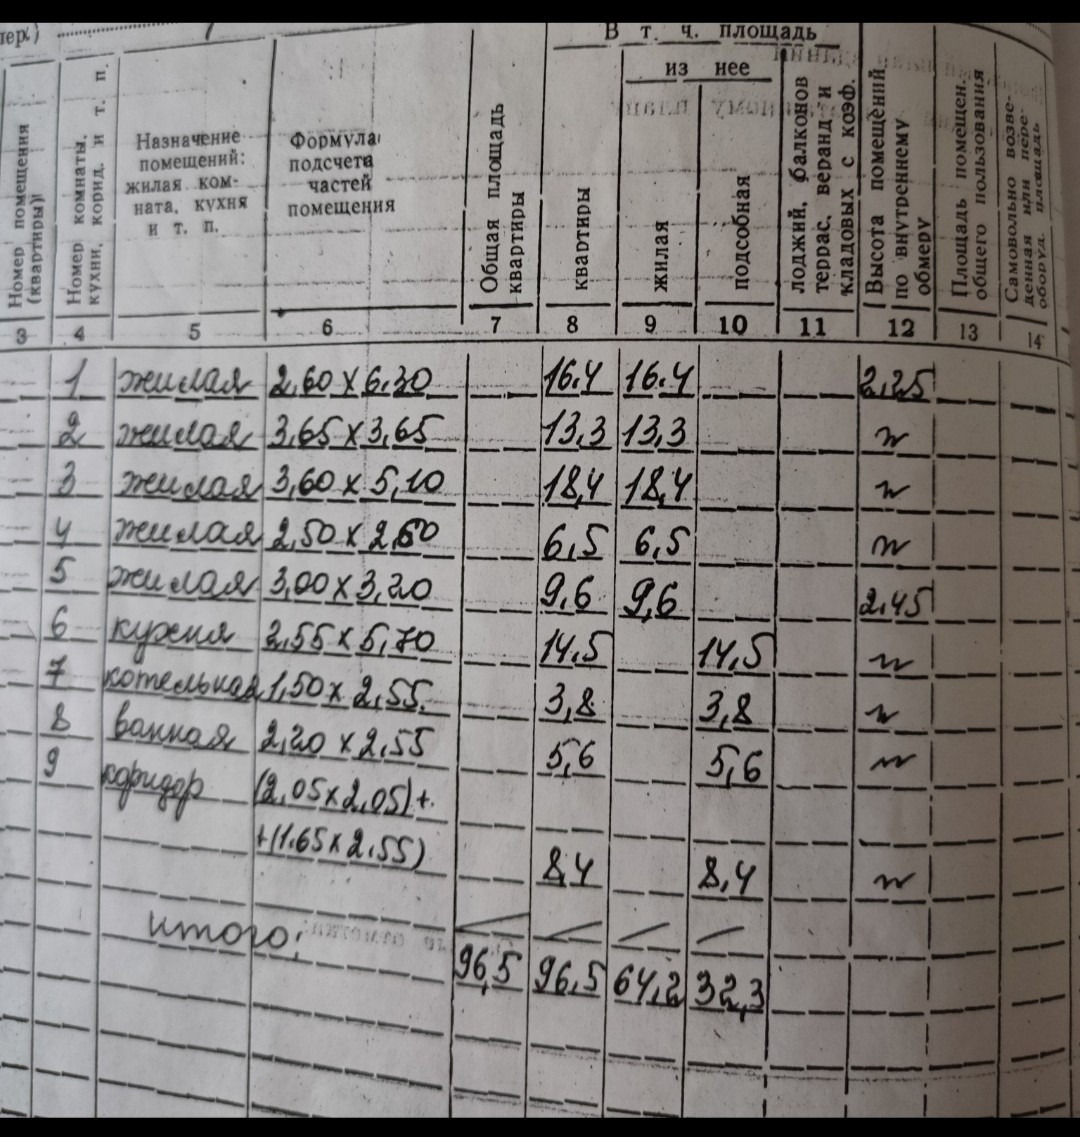 пер.)
В т. ч. площадь
из нее
Номер помещения
(квартиры)
Номер комнаты,
кухни, корид. и т. п.
Назначение
помещений:
жилая ком-
ната, кухня
и т. п.
Формула
подсчета
частей
помещения
Общая площадь
квартиры
квартиры
жилая
подсобная
лоджий, балконов
террас, веранд и
кладовых с коэф.
Высота помещений
по внутреннему
обмеру
Площадь помещен.
общего пользования
Самовольно возве-
денная или пере-
оборуд. площадь
3 4 5 6 7 8 9 10 11 12 13 14
1 жилая 2,60 х 6,30 16.4 16.4 2,25
2 жилая 3,65 х 3,65 13,3 13,3 "
3 жилая 3,60 х 5,10 18,4 18,4 "
4 жилая 2,50 х 2,60 6,5 6,5 "
5 жилая 3,00 х 3,20 9,6 9,6 2,45
6 кухня 2,55 х 5,70 14,5 14,5 "
7 котельная 1,50 х 2,55 3,8 3,8 "
8 ванная 2,20 х 2,55 5,6 5,6 "
9 коридор (2,05х2,05)+
+(1.65х2.55) 8,4 8,4 "
итого:
96,5 96,5 64,2 32,3